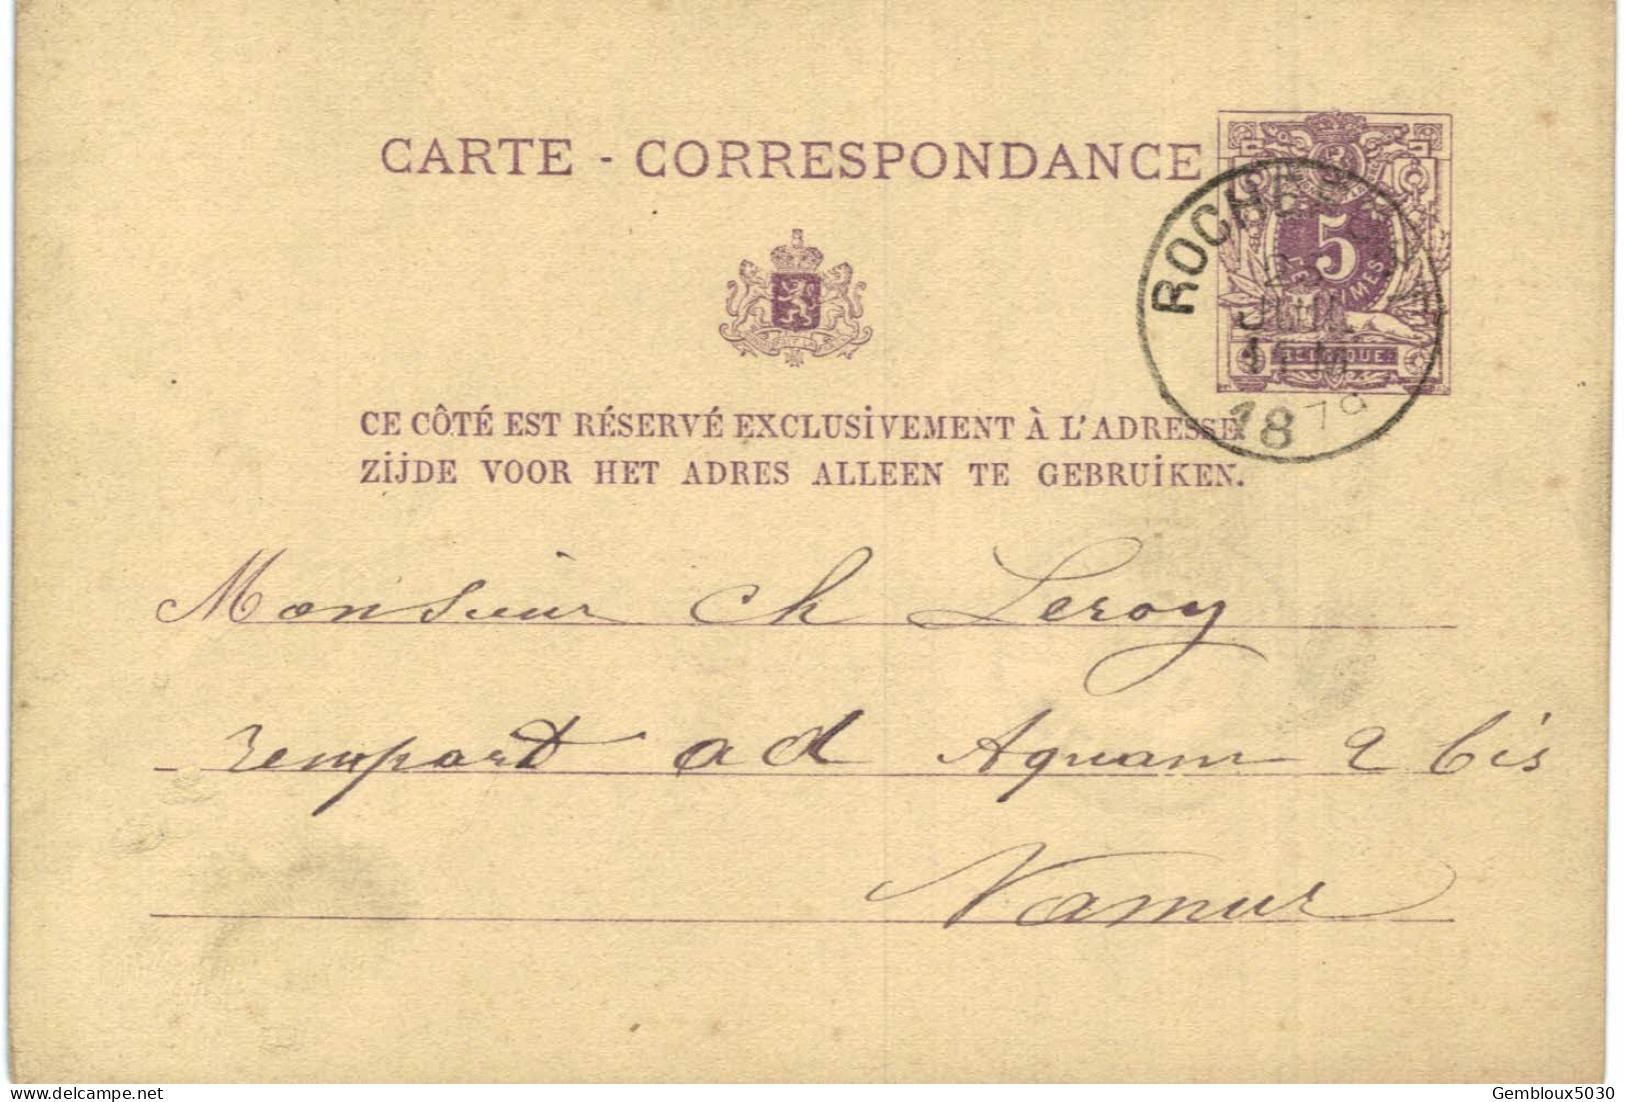 CARTE - CORRESPONDANCE
5
CENTIMES
BELGIQUE
JUIL
1879
CE CÔTÉ EST RÉSERVÉ EXCLUSIVEMENT À L'ADRESSE.
ZIJDE VOOR HET ADRES ALLEEN TE GEBRUIKEN.
Monsieur Ch Leroy
rempart ad Aquam 2 bis
Namur
Gembloux5030